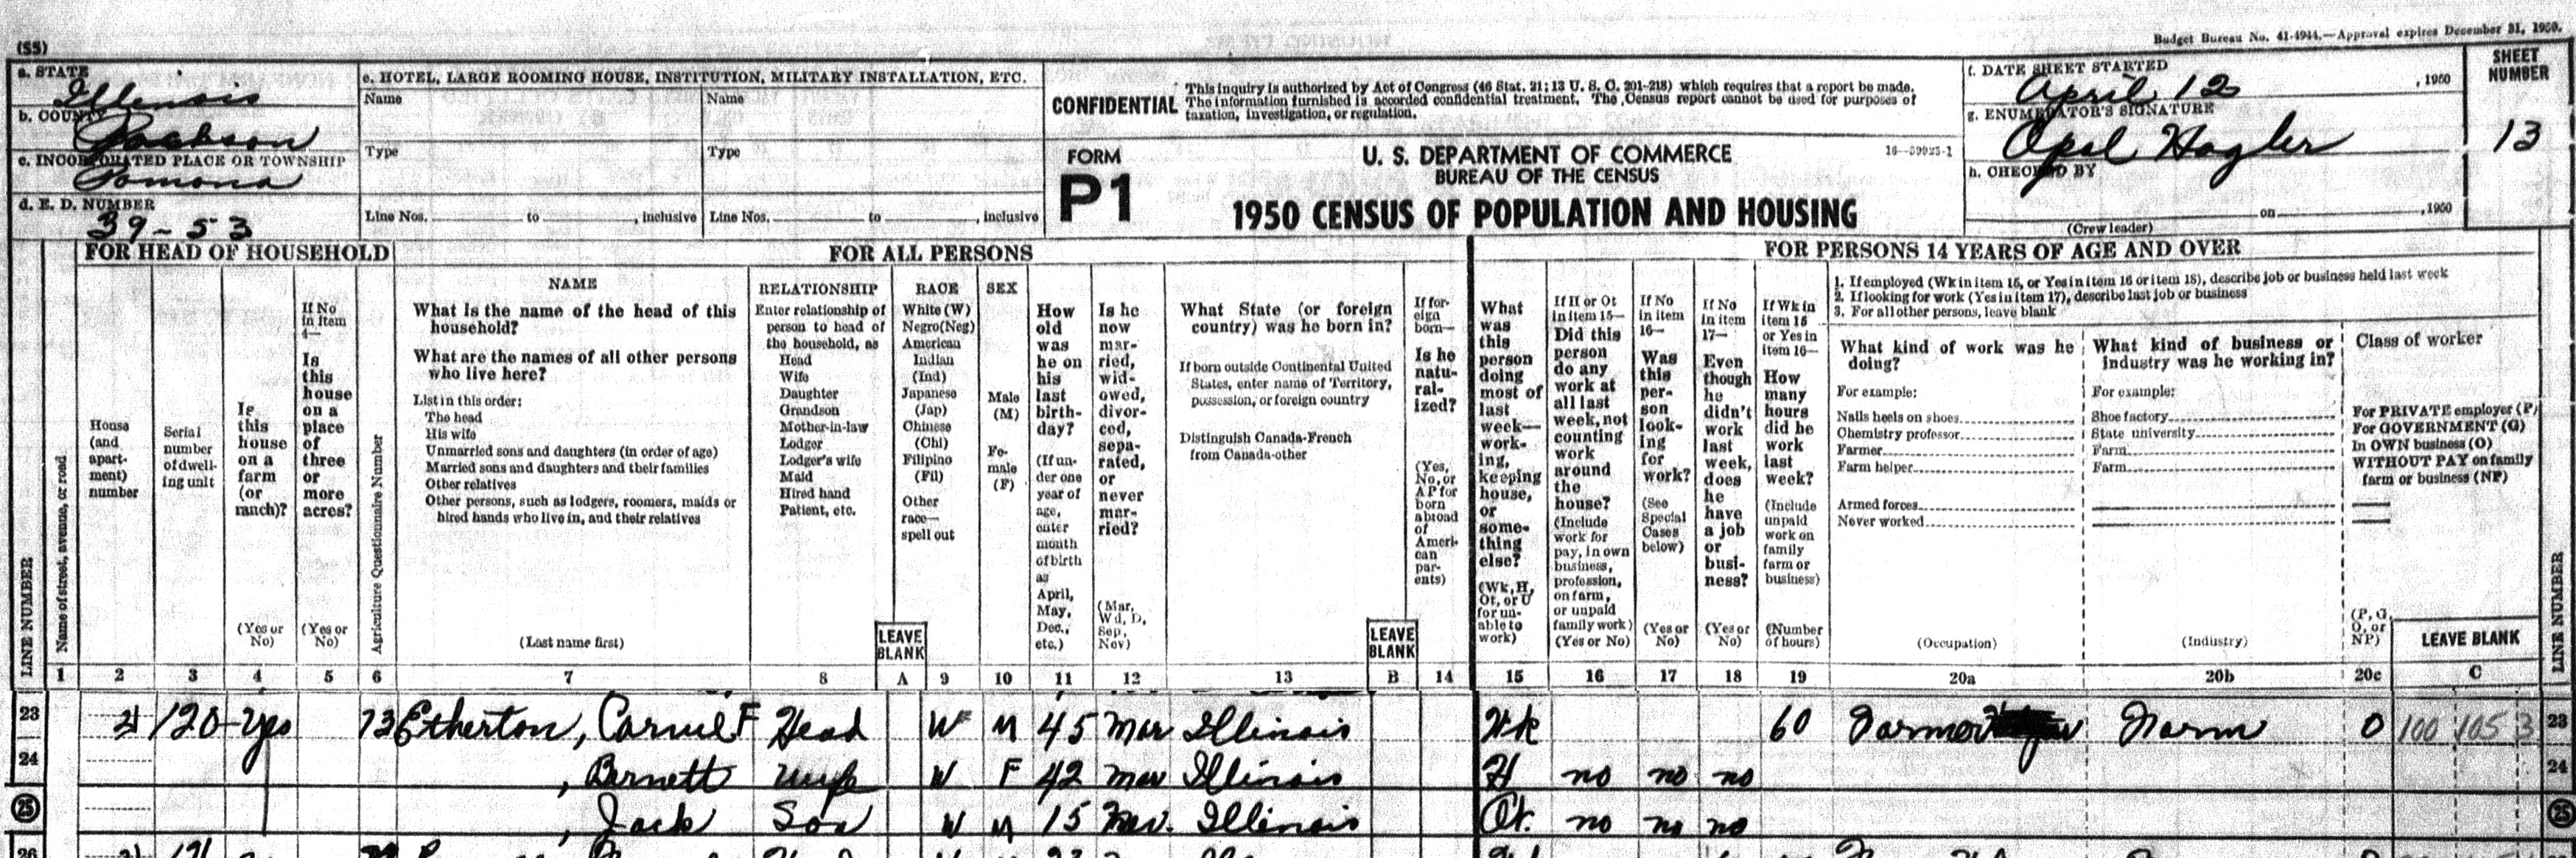 Budget Bureau No. 41-4944.—Approval expires December 31, 1950.
(S5)
a. STATE
Illinois
b. COUNTY
Jackson
c. INCORPORATED PLACE OR TOWNSHIP
Pomona
d. E. D. NUMBER
39-53
e. HOTEL, LARGE ROOMING HOUSE, INSTITUTION, MILITARY INSTALLATION, ETC.
Name Name
Type Type
Line Nos. to , inclusive Line Nos. to , inclusive
CONFIDENTIAL
This inquiry is authorized by Act of Congress (46 Stat. 21; 13 U. S. C. 201-218) which requires that a report be made.
The information furnished is accorded confidential treatment. The Census report cannot be used for purposes of
taxation, investigation, or regulation.
FORM
P1
U. S. DEPARTMENT OF COMMERCE
BUREAU OF THE CENSUS
1950 CENSUS OF POPULATION AND HOUSING
f. DATE SHEET STARTED
April 12 , 1950
g. ENUMERATOR'S SIGNATURE
Opal Hagler
h. CHECKED BY
on , 1950
(Crew leader)
SHEET
NUMBER
13
FOR HEAD OF HOUSEHOLD
FOR ALL PERSONS
FOR PERSONS 14 YEARS OF AGE AND OVER
LINE NUMBER
Name of street, avenue, or road
House
(and
apart-
ment)
number
Serial
number
of dwell-
ing unit
Is
this
house
on a
farm
(or
ranch)?
(Yes or
No)
If No
in item
4—
Is
this
house
on a
place
of
three
or
more
acres?
(Yes or
No)
Agriculture Questionnaire Number
NAME
What is the name of the head of this
household?
What are the names of all other persons
who live here?
List in this order:
The head
His wife
Unmarried sons and daughters (in order of age)
Married sons and daughters and their families
Other relatives
Other persons, such as lodgers, roomers, maids or
hired hands who live in, and their relatives
(Last name first)
RELATIONSHIP
Enter relationship of
person to head of
the household, as
Head
Wife
Daughter
Grandson
Mother-in-law
Lodger
Lodger's wife
Maid
Hired hand
Patient, etc.
LEAVE
BLANK
RACE
White (W)
Negro (Neg)
American
Indian
(Ind)
Japanese
(Jap)
Chinese
(Chi)
Filipino
(Fil)
Other
race—
spell out
SEX
Male
(M)
Fe-
male
(F)
How
old
was
he on
his
last
birth-
day?
(If un-
der one
year of
age,
enter
month
of birth
as
April,
May,
Dec.,
etc.)
Is he
now
mar-
ried,
wid-
owed,
divor-
ced,
sepa-
rated,
or
never
mar-
ried?
(Mar,
Wd, D,
Sep,
Nev)
What State (or foreign
country) was he born in?
If born outside Continental United
States, enter name of Territory,
possession, or foreign country
Distinguish Canada-French
from Canada-other
LEAVE
BLANK
If for-
eign
born—
Is he
natu-
ral-
ized?
(Yes,
No, or
AP for
born
abroad
of
Ameri-
can
par-
ents)
What
was
this
person
doing
most of
last
week—
work-
ing,
keeping
house,
or
some-
thing
else?
(Wk, H,
Ot, or U
for un-
able to
work)
If H or Ot
in item 15—
Did this
person
do any
work at
all last
week, not
counting
work
around
the
house?
(Include
work for
pay, in own
business,
profession,
on farm,
or unpaid
family work)
(Yes or No)
If No
in item
16—
Was
this
per-
son
look-
ing
for
work?
(See
Special
Cases
below)
(Yes or
No)
If No
in item
17—
Even
though
he
didn't
work
last
week,
does
he
have
a job
or
busi-
ness?
(Yes or
No)
If Wk in
item 15
or Yes in
item 16—
How
many
hours
did he
work
last
week?
(Include
unpaid
work on
family
farm or
business)
(Number
of hours)
1. If employed (Wk in item 15, or Yes in item 16 or item 18), describe job or business held last week
2. If looking for work (Yes in item 17), describe last job or business
3. For all other persons, leave blank
What kind of work was he
doing?
For example:
Nails heels on shoes
Chemistry professor
Farmer
Farm helper
Armed forces
Never worked
(Occupation)
What kind of business or
industry was he working in?
For example:
Shoe factory
State university
Farm
Farm
(Industry)
Class of worker
For PRIVATE employer (P)
For GOVERNMENT (G)
In OWN business (O)
WITHOUT PAY on family
farm or business (NP)
(P, G,
O, or
NP)
LEAVE BLANK
LINE NUMBER
1 2 3 4 5 6 7 8 A 9 10 11 12 13 B 14 15 16 17 18 19 20a 20b 20c C
23 120 yes 73 Etherton, Carruel F Head W M 45 Mar Illinois Wk 60 Farmer Farm O 100 105 3 23
24 , Bernett Wife W F 42 Mar Illinois H no no no 24
25 , Jack Son W M 15 Nev. Illinois Ot. no no no 25
26